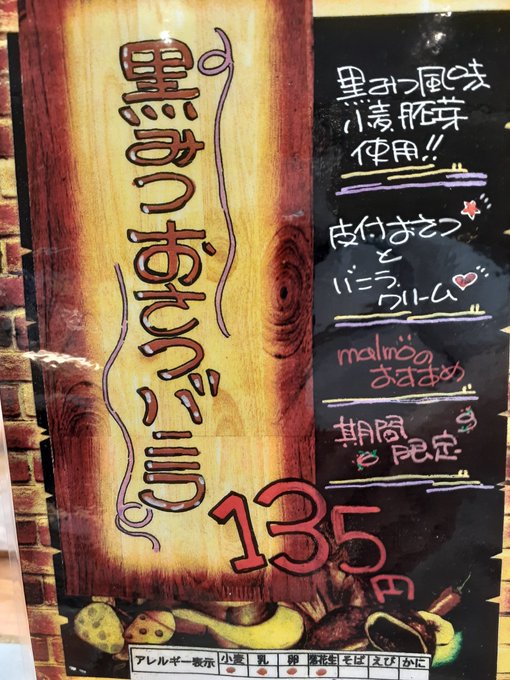 黒みつおさつバニラ
黒みつ風味
小麦胚芽
使用!!
皮付おさつ
と
バニラ
クリーム
malmöの
おすすめ
期間
限定
135
円
アレルギー表示 小麦 乳 卵 落花生 そば えび かに